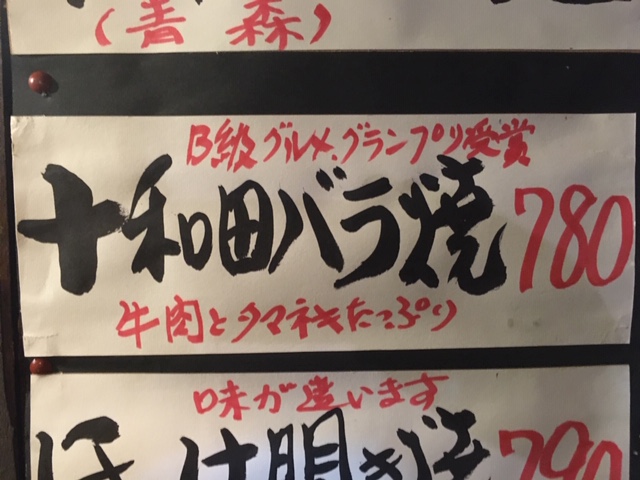 (青森)
B級グルメ.グランプリ受賞
十和田バラ焼 780
牛肉とタマネギたっぷり
味が違います
790